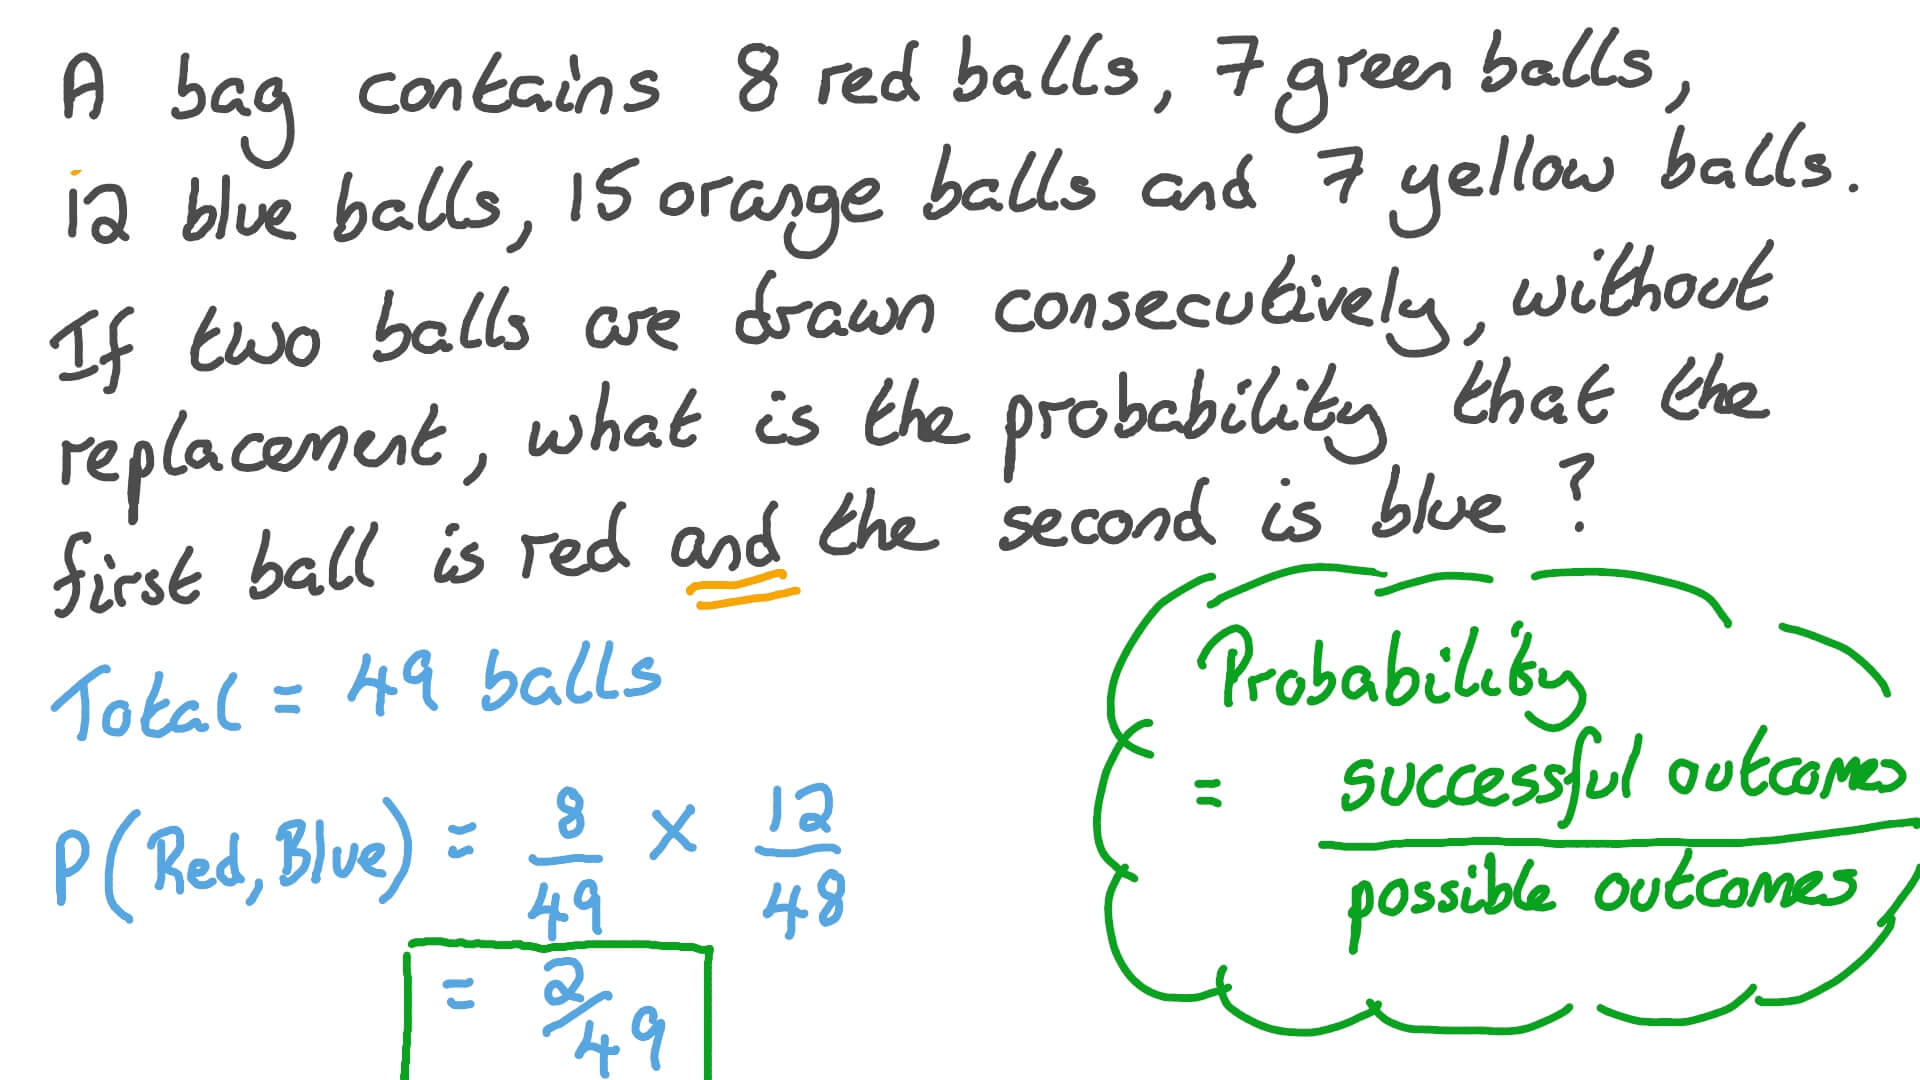 A bag contains 8 red balls, 7 green balls,
12 blue balls, 15 orange balls and 7 yellow balls.
If two balls are drawn consecutively, without
replacement, what is the probability that the
first ball is red and the second is blue?
Total = 49 balls
P(Red, Blue) = 8/49 × 12/48
= 2/49
Probability
= successful outcomes
possible outcomes